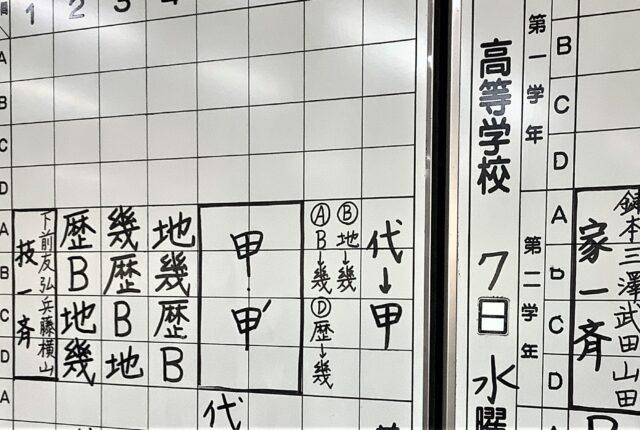 1 2 3
A
B
C
D
A
B
C
D
A
技一斉
下前友弘兵藤横山
歴 幾 地
B 歴 幾
地 B 歴
幾 地 B
甲
甲′
Ⓐ B→幾
Ⓑ 地→幾
Ⓓ 歴→幾
代→甲
代
高等学校
7日 水曜
第一学年
B
C
D
第二学年
A
b
C
D
家一斉
本三澤武田山田